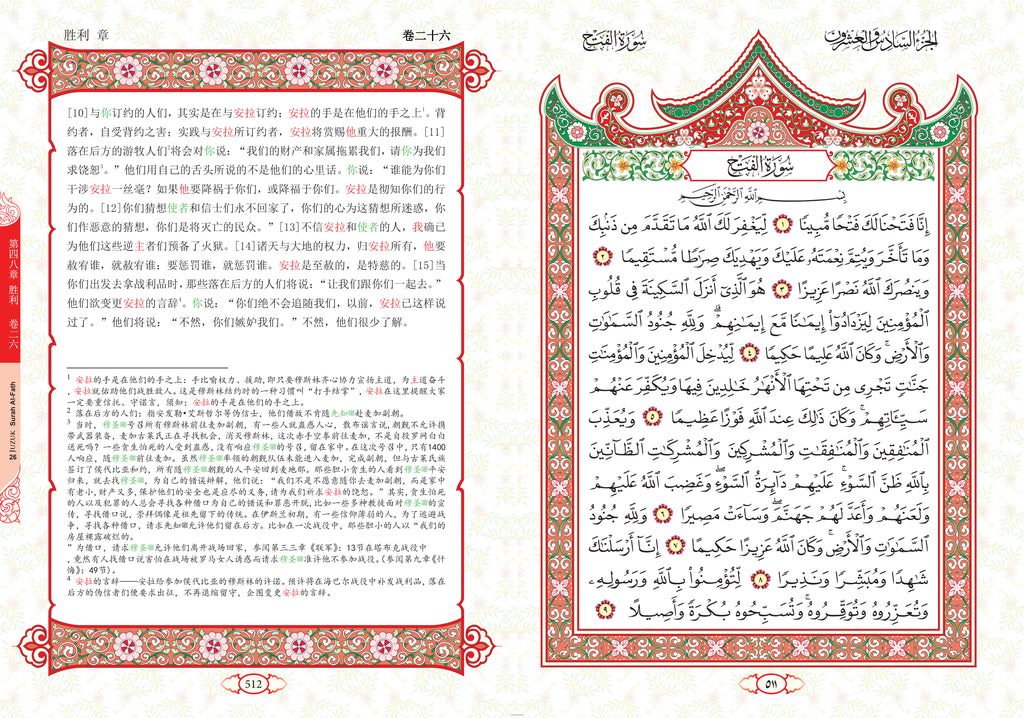 胜利 章
卷二十六
[10]与你订约的人们，其实是在与安拉订约；安拉的手是在他们的手之上¹。背
约者，自受背约之害；实践与安拉所订约者，安拉将赏赐他重大的报酬。[11]
落在后方的游牧人们²将会对你说：“我们的财产和家属拖累我们，请你为我们
求饶恕³。”他们用自己的舌头所说的不是他们的心里话。你说：“谁能为你们
干涉安拉一丝毫？如果他要降祸于你们，或降福于你们。安拉是彻知你们的行
为的。[12]你们猜想使者和信士们永不回家了，你们的心为这猜想所迷惑，你
们作恶意的猜想，你们是将灭亡的民众。”[13]不信安拉和使者的人，我确已
为他们这些逆主者们预备了火狱。[14]诸天与大地的权力，归安拉所有，他要
赦有谁，就赦有谁；要惩罚谁，就惩罚谁。安拉是至赦的，是特慈的。[15]当
你们出发去拿战利品时，那些落在后方的人们将说：“让我们跟你们一起去。”
他们欲变更安拉的言辞⁴。你说：“你们绝不会追随我们，以前，安拉已这样说
过了。”他们将说：“不然，你们嫉妒我们。”不然，他们很少了解。
¹ 安拉的手是在他们的手之上：手比喻权力、援助，即只要穆斯林齐心协力宣扬主道，为主道奋斗
，安拉就佑助他们战胜敌人。这是穆斯林结约时的一种习惯叫“打手结掌”，安拉在这里提醒大家
一定要重信托、守诺言，须知：安拉的手是在他们的手之上。
² 落在后方的人们：指安发勒•艾斯督尔等伪信士，他们借故不肯随先知ﷺ赴麦加副朝。
³ 当时，穆圣ﷺ号召所有穆斯林前往麦加副朝，有一些人就蛊惑人心，散布谣言说，朝觐不允许携
带武器装备，麦加古莱氏正在寻找机会，消灭穆斯林，这次赤手空拳前往麦加，不是自投罗网白白
送死吗？一些贪生怕死的人受到蛊惑，没有响应穆圣ﷺ的号召，留在家中。在这次号召中，只有1400
人响应，随穆圣ﷺ前往麦加。虽然穆圣ﷺ率领的朝觐队伍未能进入麦加，完成副朝，但与古莱氏族
签订了侯代比亚和约，所有随穆圣ﷺ朝觐的人平安回到麦地那。那些胆小贪生的人看到穆圣ﷺ平安
归来，就去找穆圣ﷺ，为自己的错误辩解，他们说：“我们是不愿意随你去麦加副朝，而是家中
有老小，财产又多，保护他们的安全也是应尽的义务，请为我们祈求安拉的饶恕。”其实，贪生怕死
的人以及犯罪的人总会寻找各种借口为自己的错误和罪恶开脱，比如一些多神教徒面对穆圣ﷺ的宣
传，寻找借口说，崇拜偶像是祖先留下的传统。在伊斯兰初期，有一些信仰薄弱的人，为了逃避战
争，寻找各种借口，请求先知ﷺ允许他们留在后方。比如在一次战役中，那些胆小的人以“我们的
房屋裸露破烂的。
”为借口，请求穆圣ﷺ允许他们离开战场回家，参阅第三三章《联军》：13节在塔布克战役中
，竟然有人找借口说害怕在战场被罗马女人诱惑而请求穆圣ﷺ准许他不参加战役。（参阅第九章《忏
悔》：49节）。
⁴ 安拉的言辞——安拉给参加侯代比亚的穆斯林的许诺。预许将在海巴尔战役中补发战利品，落在
后方的伪信者们便要求出征，不再退缩留守，企图变更安拉的言辞。
512
第四八章 胜利 卷二六
Surah Al-Fath
JUZUK 26
سُورَةُ الفَتْحِ
الجُزْءُ السَّادِسُ وَالعِشْرُونَ
سُورَةُ الفَتْحِ
بِسْمِ اللَّهِ الرَّحْمَٰنِ الرَّحِيمِ
إِنَّا فَتَحْنَا لَكَ فَتْحًا مُّبِينًا ١ لِّيَغْفِرَ لَكَ ٱللَّهُ مَا تَقَدَّمَ مِن ذَنۢبِكَ
وَمَا تَأَخَّرَ وَيُتِمَّ نِعْمَتَهُۥ عَلَيْكَ وَيَهْدِيَكَ صِرَٰطًا مُّسْتَقِيمًا ٢
وَيَنصُرَكَ ٱللَّهُ نَصْرًا عَزِيزًا ٣ هُوَ ٱلَّذِىٓ أَنزَلَ ٱلسَّكِينَةَ فِى قُلُوبِ
ٱلْمُؤْمِنِينَ لِيَزْدَادُوٓا۟ إِيمَٰنًا مَّعَ إِيمَٰنِهِمْ ۗ وَلِلَّهِ جُنُودُ ٱلسَّمَٰوَٰتِ
وَٱلْأَرْضِ ۚ وَكَانَ ٱللَّهُ عَلِيمًا حَكِيمًا ٤ لِّيُدْخِلَ ٱلْمُؤْمِنِينَ وَٱلْمُؤْمِنَٰتِ
جَنَّٰتٍ تَجْرِى مِن تَحْتِهَا ٱلْأَنْهَٰرُ خَٰلِدِينَ فِيهَا وَيُكَفِّرَ عَنْهُمْ
سَيِّـَٔاتِهِمْ ۚ وَكَانَ ذَٰلِكَ عِندَ ٱللَّهِ فَوْزًا عَظِيمًا ٥ وَيُعَذِّبَ
ٱلْمُنَٰفِقِينَ وَٱلْمُنَٰفِقَٰتِ وَٱلْمُشْرِكِينَ وَٱلْمُشْرِكَٰتِ ٱلظَّآنِّينَ
بِٱللَّهِ ظَنَّ ٱلسَّوْءِ ۚ عَلَيْهِمْ دَآئِرَةُ ٱلسَّوْءِ ۖ وَغَضِبَ ٱللَّهُ عَلَيْهِمْ
وَلَعَنَهُمْ وَأَعَدَّ لَهُمْ جَهَنَّمَ ۖ وَسَآءَتْ مَصِيرًا ٦ وَلِلَّهِ جُنُودُ
ٱلسَّمَٰوَٰتِ وَٱلْأَرْضِ ۚ وَكَانَ ٱللَّهُ عَزِيزًا حَكِيمًا ٧ إِنَّآ أَرْسَلْنَٰكَ
شَٰهِدًا وَمُبَشِّرًا وَنَذِيرًا ٨ لِّتُؤْمِنُوا۟ بِٱللَّهِ وَرَسُولِهِۦ
وَتُعَزِّرُوهُ وَتُوَقِّرُوهُ ۚ وَتُسَبِّحُوهُ بُكْرَةً وَأَصِيلًا ٩
٥١١